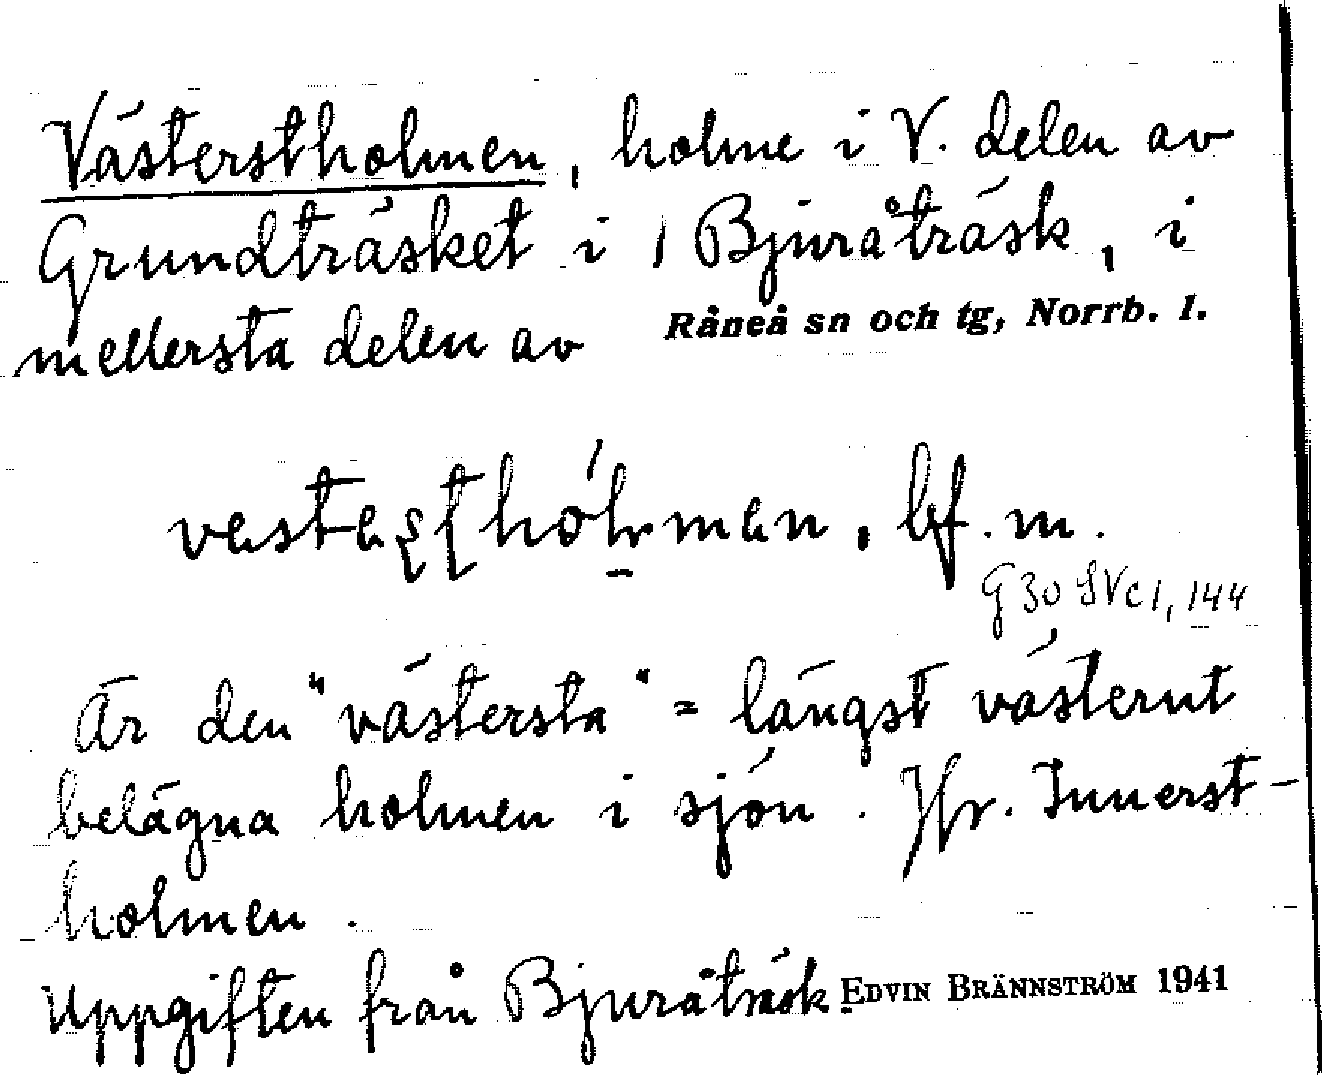 Västerstholmen, holme i V. delen av
Grundträsket i / Bjuråträsk, i
mellersta delen av Råneå sn och tg, Norrb. l.
bf. m.
G 30 SVc1, 144
Är den "västersta" = längst västerut
belägna holmen i sjön. Jfr. Innerst-
holmen.
Uppgiften från Bjuråträsk. EDVIN BRÄNNSTRÖM 1941